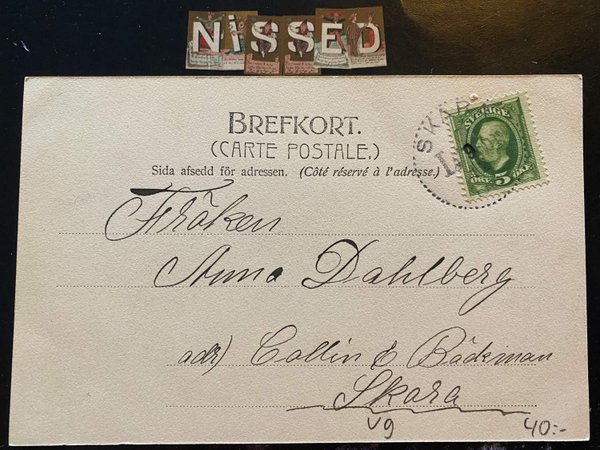 NiSSED
BREFKORT.
(CARTE POSTALE.)
Sida afsedd för adressen. (Côté réservé à l'adresse.)
SKAR
SVERIGE
ÖRE 5 ÖRE
Fröken
Anna Dahlberg
adr) Collin & Bäckman
Skara
Vg
40:-